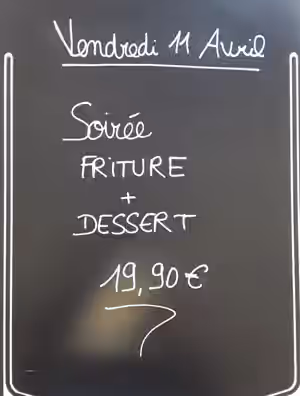 Vendredi 11 Avril
Soirée
FRITURE
+
DESSERT
19,90 €